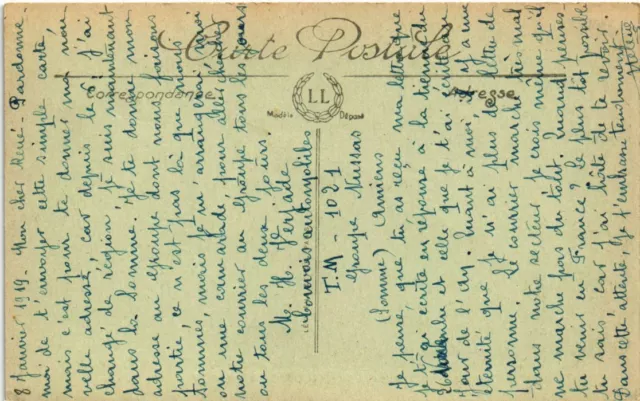 Carte Postale
Correspondance
Adresse
LL
Modèle Déposé
8 Janvier 1919. Mon cher René. Pardonne-
moi de t'envoyer cette simple carte
mais c'est pour te donner ma nou-
velle adresse, car depuis le 6, j'ai
changé de région, je suis maintenant
dans la Somme. Je te donne mon
adresse au groupe dont nous faisons
partie, ce n'est pas là que nous
sommes, mais je m'arrangerai moi
ou une camarade pour aller chercher
notre courrier au groupe tous les jours
ou tous les deux jours.
M. H.
Convois automobiles
T.M - 1021
Groupe
(Somme) Amiens
Je pense que tu as reçu ma lettre que
je t'ai écrite en réponse à la tienne du
26 et celle que je t'ai écrite le
jour de l'An. Quant à moi il y a une
éternité que je n'ai plus de lettre de
personne. Le courrier marche très mal
dans notre secteur, je crois même qu'il
ne marche pas du tout. Quand penses-
tu venir en France? Le plus tôt possible
tu sais, car j'ai hâte de te revoir.
Dans cette attente, je t'embrasse tendrement